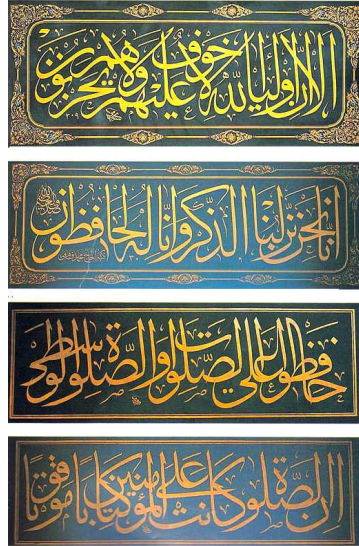 الا ان اولياء الله لا خوف عليهم ولا هم يحزنون
انا نحن نزلنا الذكر وانا له لحافظون
حافظوا على الصلوات والصلوة الوسطى
ان الصلوة كانت على المؤمنين كتابا موقوتا